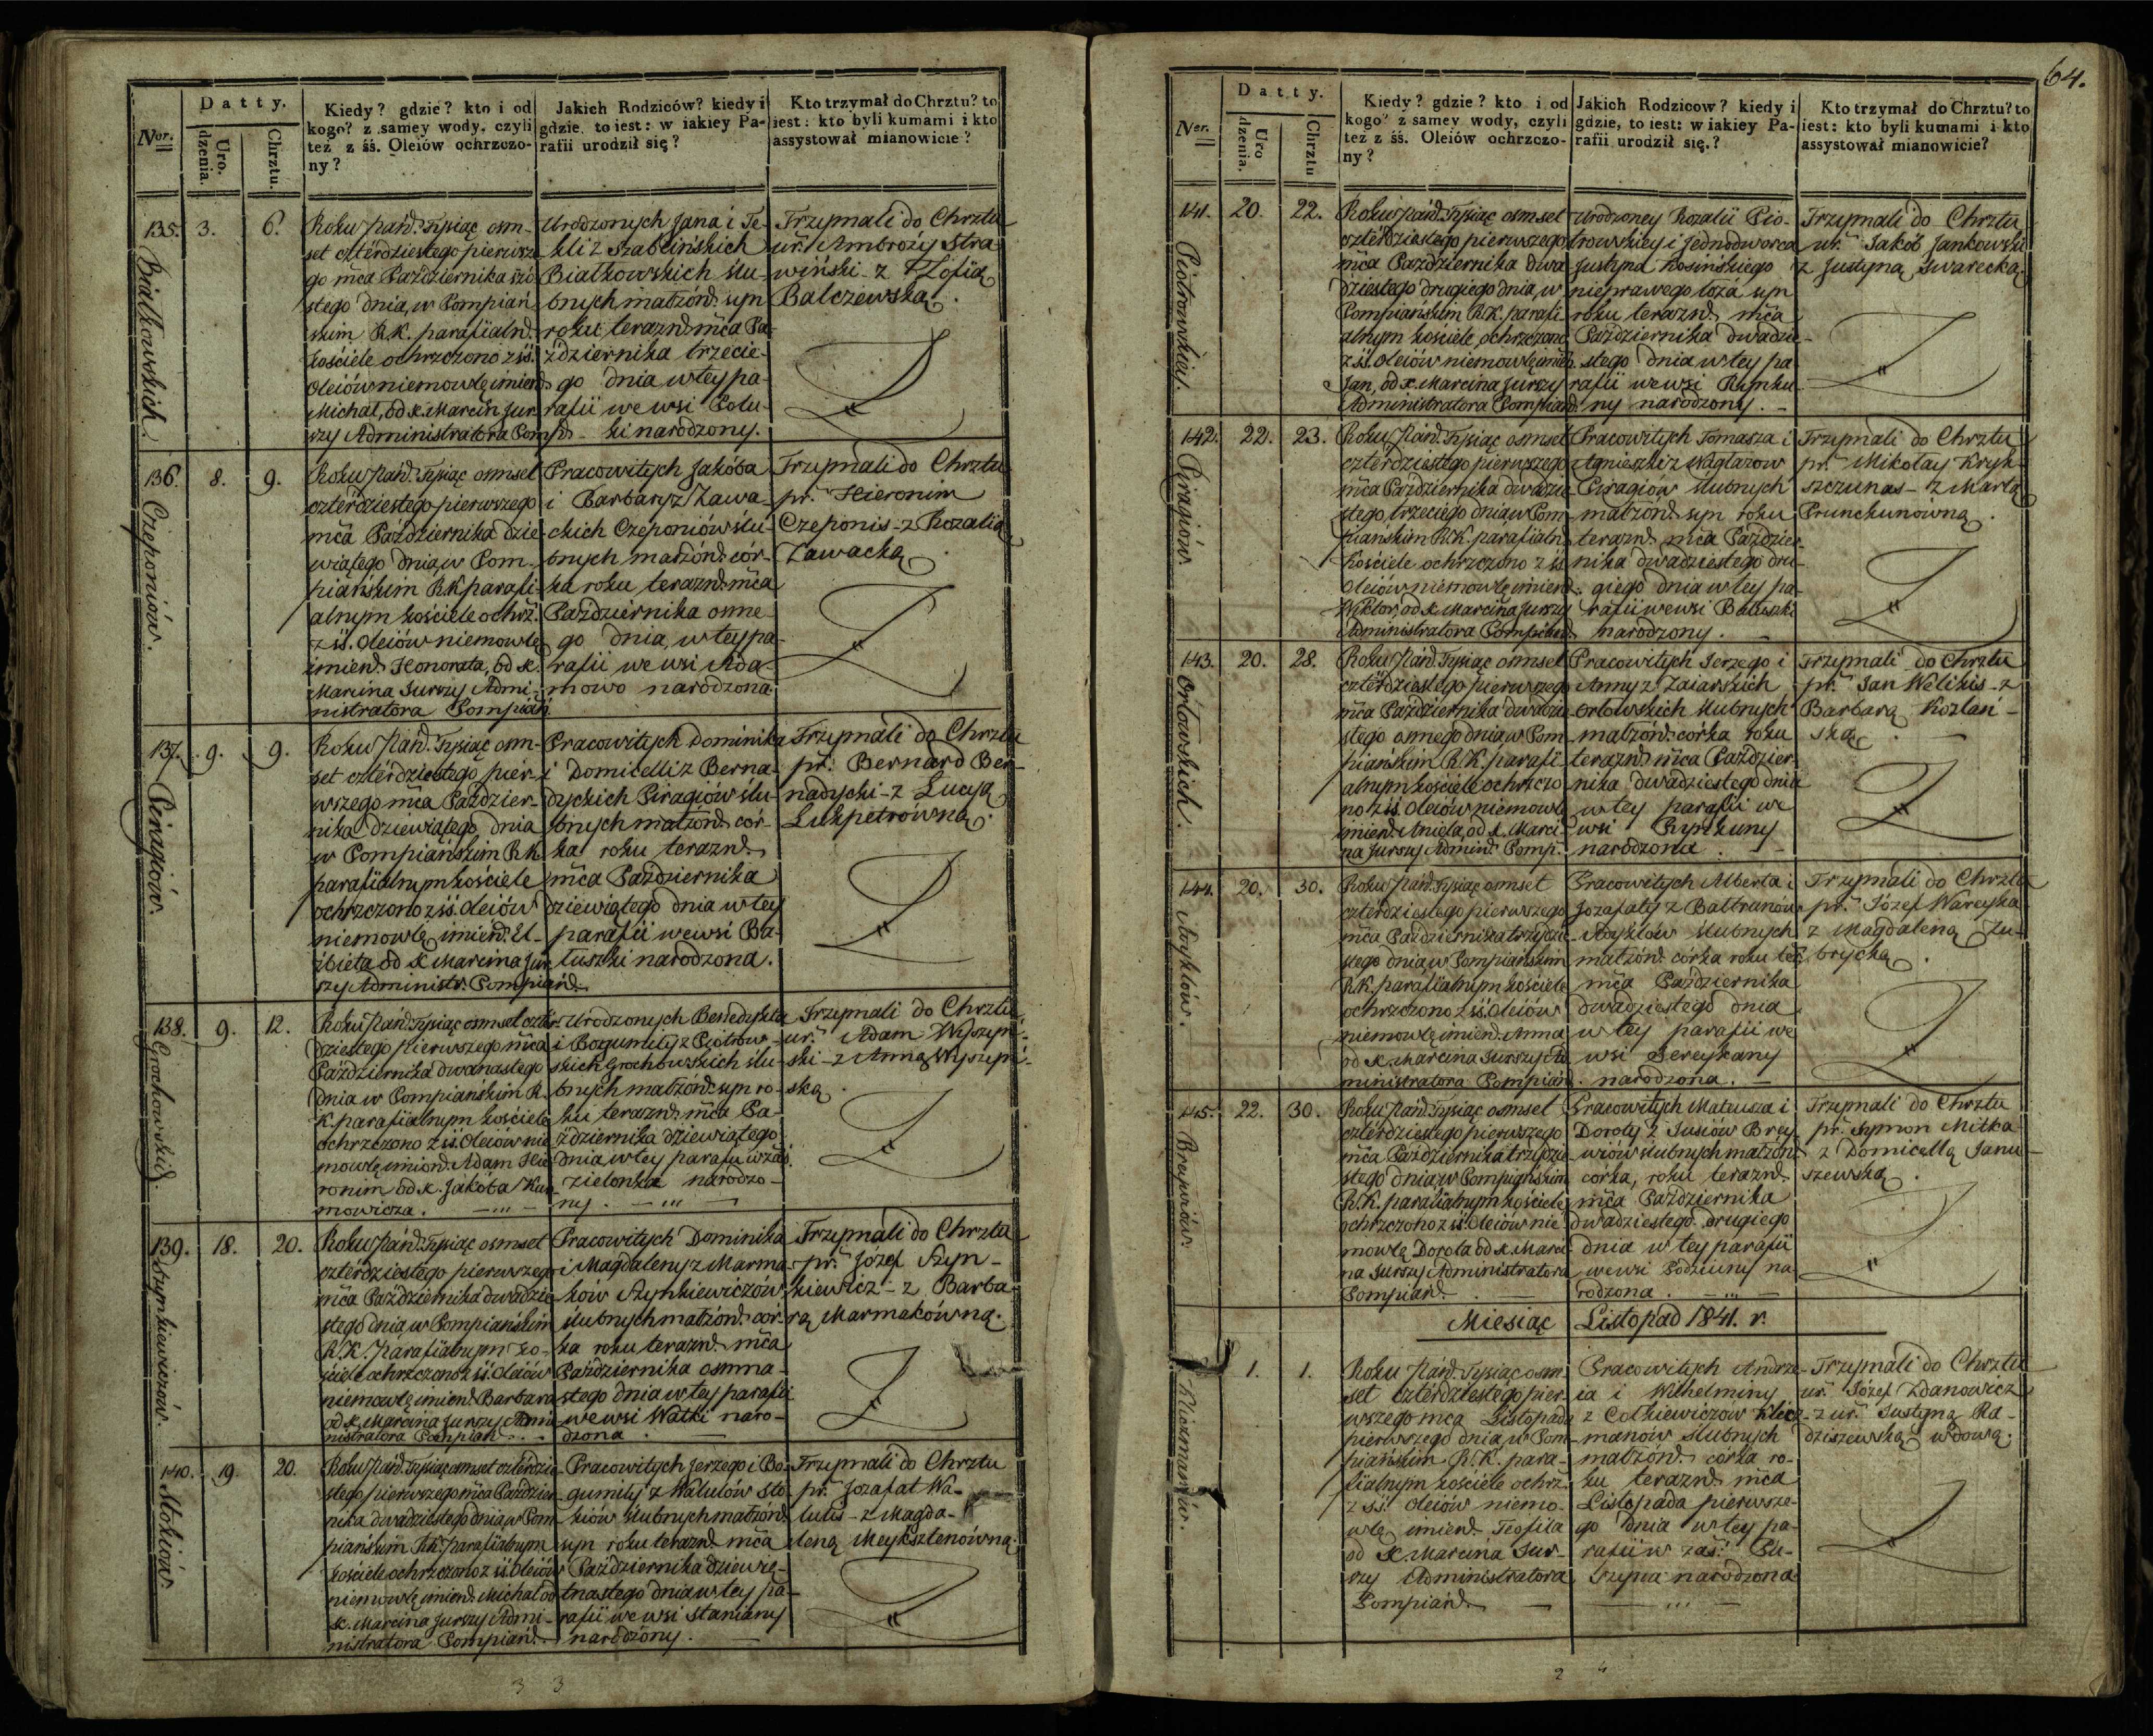 Nor.
Datty.
Uro.
dzenia.
Chrztu.
Kiedy? gdzie? kto i od
kogo? z samey wody, czyli
też z śś. Oleiów ochrzczo-
ny?
Jakich Rodziców? kiedy i
gdzie, to iest: w iakiey Pa-
rafii urodził się?
Kto trzymał do Chrztu? to
iest: kto byli kumami i kto
assystował mianowicie?
135. 3. 6.
Białkowskich.
Roku Pańd. Tysiąc osm-
set cztérdziestego pierwsze-
go mca Października szó-
stego dnia, w Pompiań-
skim R.K. parafialnd.
kościele ochrzczono z śś.
Oleiów niemowlę imiend
Michał, od X. Marcin Jur-
szy Administratora Pompd.
Urodzonych Jana i Te-
kli z Szablińskich
Białkowskich ślu-
bnych małżónd. syn
roku teraznd. mca Pa-
ździernika trzecie-
go dnia w tey pa-
rafii we wsi Polu-
ki narodzony.
Trzymali do Chrztu
ur. Ambroży Stra-
wiński z Zofią
Balczewską.
136. 8. 9.
Czeponiów.
Roku Pańd. Tysiąc osmset
cztérdziestego pierwszego
mca Października dzie-
wiątego dnia, w Pom-
piańskim R.K. parafi-
alnym kościele ochrz.
z śś. Oleiów niemowlę
imiend. Honorata, od X.
Marcina Jurszy Admi-
nistratora Pompiań.
Pracowitych Jakóba
i Barbary z Zawa-
ckich Czeponiów ślu-
bnych małżónd. cór-
ka roku teraznd. mca
Października osme-
go dnia, w tey pa-
rafii we wsi Ada-
mowo narodzona
Trzymali do Chrztu
pr. Hieronim
Czeponis z Rozalią
Zawacką
137. 9. 9.
Piragiów.
Roku Pańd. Tysiąc osm-
set cztérdziestego pier-
wszego mca Paździer-
nika dziewiątego dnia
w Pompiańskim R.K.
parafialnym kościele
ochrzczono z śś. Oleiów
niemowlę imiend. El-
żbieta od X. Marcina Jur-
szy Administr. Pompiańd.
Pracowitych Dominika
i Domicelli z Berna-
dyckich Piragiów ślu-
bnych małżónd. cór-
ka roku teraznd.
mca Października
dziewiątego dnia w tey
parafii we wsi Ba-
łuszki narodzona.
Trzymali do Chrztu
pr. Bernard Ber-
nadycki z Łucyą
Lukpetrówną.
138. 9. 12.
Grochowskid.
Roku Pańd. Tysiąc osmset czter-
dziestego pierwszego mca
Października dwunastego
dnia w Pompiańskim R.
K. parafialnym kościele
ochrzczono z śś. Oleiów nie-
mowlę imiond. Adam Hie-
ronim od X. Jakóba Kun-
mowicza.
Urodzonych Benedykta
i Bogumiły z Piotrow-
skich Grochowskich ślu-
bnych małżónd. syn ro-
ku teraznd. mca Pa-
ździernika dziewiątego
dnia w tey parafii w zaś.
Zielonka narodzo-
ny.
Trzymali do Chrztu
ur. Adam Wyszyń-
ski z Anną Wyszyń-
ską
139. 18. 20.
Szynkiewiczów.
Roku Pańd. Tysiąc osmset
cztérdziestego pierwszego
mca Października dwudzie-
stego dnia, w Pompiańskim
R.K. Parafialnym ko-
ściele ochrzczono z śś. Oleiów
niemowlę imiend. Barbara
od X. Marcina Jurszy Admi-
nistratora Pompiań.
Pracowitych Dominika
i Magdaleny z Marma-
ków Szynkiewiczów
ślubnych małżónd. cór-
ka roku teraznd. mca
Października osmna-
stego dnia w tey parafii
we wsi Watki naro-
dzona.
Trzymali do Chrztu
pr. Józef Szyn-
kiewicz z Barba-
rą Marmakówną.
140. 19. 20.
Stokiów.
Roku Pańd. Tysiąc osmset cztérdzie-
stego pierwszego mca Paździer-
nika dwudziestego dnia w Pom-
piańskim R.K. parafialnym
kościele ochrzczono z śś. Oleiów
niemowlę imiend. Michał od
X. Marcina Jurszy Admi-
nistratora Pompiańd.
Pracowitych Jerzego i Bo-
gumiły z Walulów Sto-
kiów ślubnych małżónd.
syn roku teraznd. mca
Października dziewię-
tnastego dnia w tey pa-
rafii we wsi Staniany
narodzony.
Trzymali do Chrztu
pr. Jozafat Wa-
lulis z Magda-
leną Meyksztenówną.
3 3
64.
Ner.
Datty.
Uro
dzenia.
Chrztu
Kiedy? gdzie? kto i od
kogo? z samey wody, czyli
też z śś. Oleiów ochrzczo-
ny?
Jakich Rodzicow? kiedy i
gdzie, to iest: w iakiey Pa-
rafii urodził się.?
Kto trzymał do Chrztu? to
iest: kto byli kumami i kto
assystował mianowicie?
141. 20. 22.
Piotrowskiey.
Roku Pańd. Tysiąc osmset
cztérdziestego pierwszego
mca Października dwu-
dziestego drugiego dnia, w
Pompiańskim R.K. parafi-
alnym kościele, ochrzczono
z śś. Oleiów niemowlę imieb.
Jan, od X. Marcina Jurszy
Administratora Pompiand.
Urodzoney Rozalii Pio-
trowskiey i Jednodworca
Justyna Kosińskiego
nieprawego łoża syn
roku teraznd. mca
Października dwudzie-
stego dnia w tey pa-
rafii we wsi Rymku-
ny narodzony.
Trzymali do Chrztu
ur. Jakób Jankowski
z Justyną Swarecką.
142. 22. 23.
Piragiów.
Roku Pańd. Tysiąc osmset
cztérdziestego pierwszego
mca Października dwudzie-
stego trzeciego dnia, w Pom-
piańskim R.K. parafialn.
Kościele ochrzczono z śś.
Oleiów niemowlę imiend.
Wiktor, od X. Marcina Jurszy
Administratora Pompiand.
Pracowitych Tomasza i
Agnieszki z Waglazow
Piragiów ślubnych
małżónd. syn roku
teraznd. mca Paździer-
nika dwudziestego dru-
giego dnia w tey pa-
rafii we wsi Bałuszki
narodzony.
Trzymali do Chrztu
pr. Mikołay Kryk-
szczunas z Martą
Prunckunówną.
143. 20. 28.
Orłowskich.
Roku Pańd. Tysiąc osmset
cztérdziestego pierwszego
mca Października dwudzie-
stego osmego dnia w Pom-
piańskim R.K. parafi-
alnym kościele ochrzczo-
no z śś. Oleiów niemowlę
imiend. Aniela, od X. Marci-
na Jurszy Admind. Pomp.
Pracowitych Jerzego i
Anny z Zaiarskich
Orłowskich ślubnych
małżónd. córka roku
teraznd. mca Paździer-
nika dwudziestego dnia
w tey parafii we
wsi Pryckuny
narodzona.
Trzymali do Chrztu
pr. Jan Welikis z
Barbarą Kozłań-
ską.
144. 20. 30.
Roku Pańd. Tysiąc osmset
cztérdziestego pierwszego
mca Października trzydzie-
stego dnia, w Pompiańskim
R.K. parafialnym kościele
ochrzczono z śś. Oleiów
niemowlę imiend. Anna
od X. Marcina Jurszy Ad-
ministratora Pompiańd.
Pracowitych Alberta i
Jozafaty z Baltranów
ślubnych
małżónd. córka roku teź.
mca Października
dwudziestego dnia
w tey parafii we
wsi Bereykany
narodzona.
Trzymali do Chrztu
pr. Józef Wareyka
z Magdaleną Zu-
brycką.
145. 22. 30.
Breywiów.
Roku Pańd. Tysiąc osmset
cztérdziestego pierwszego
mca Października trzydzie-
stego dnia, w Pompiańskim
R.K. parafialnym kościele
ochrzczono z śś. Oleiów nie-
mowlę Dorota od X. Marci-
na Jurszy Administratora
Pompiańd.
Pracowitych Mateusza i
Doroty z Susiów Brey-
wiów ślubnych małżónd.
córka, roku teraznd.
mca Października
dwudziestego drugiego
dnia w tey parafii
we wsi Podziuny na-
rodzona.
Trzymali do Chrztu
pr. Symon Mitka
z Domicellą Janu-
szewską.
Miesiąc Listopad 1841. r.
1. 1.
Kliczmanów.
Roku Pańd. Tysiąc osm-
set cztérdziestego pier-
wszego mca Listopada
pierwszego dnia, w Pom-
piańskim R.K. para-
fialnym kościele ochrz.
z śś. Oleiów niemo-
wlę imiend. Teofila
od X. Marcina Jur-
szy Administratora
Pompiańd.
Pracowitych Andrze-
ia i Wilhelminy
z Cotkiewiczów Klicz-
manów ślubnych
małżónd. córka ro-
ku teraznd. mca
Listopada pierwsze-
go dnia w tey pa-
rafii w zaś. Pu-
szyna narodzona
Trzymali do Chrztu
ur. Józef Zdanowicz
z ur. Justyną Ra-
dziszewską wdową.
2 4